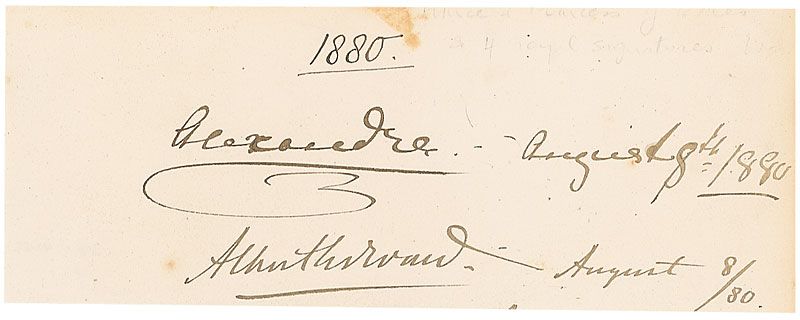 Princess of Wales
4 royal signatures
1880.
Alexandra. - August 8th/1880
Albert Edward. - August 8/80.